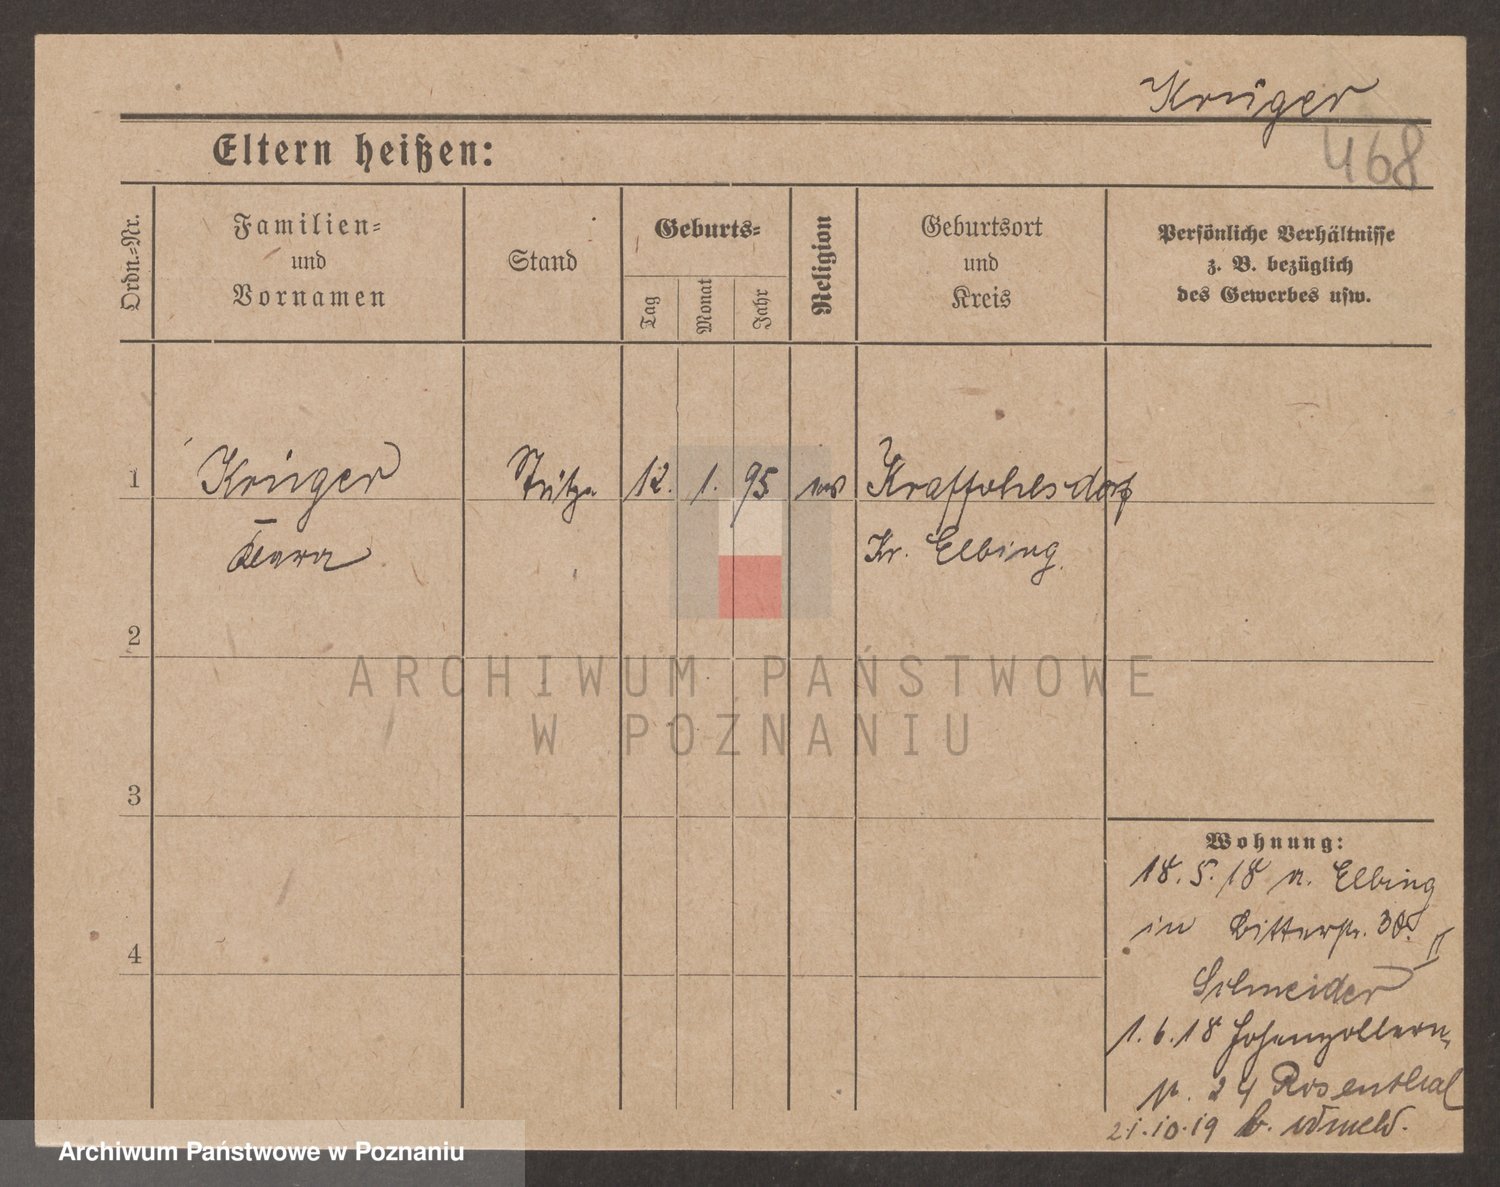 Krüger
468
Eltern heißen:
Ordn.-Nr.
Familien-
und
Vornamen
Stand
Geburts-
Tag
Monat
Jahr
Religion
Geburtsort
und
Kreis
Persönliche Verhältnisse
z. B. bezüglich
des Gewerbes usw.
1
Krüger
Stütze
12. 1. 95
ev
Kraffohlsdorf
Klara
Kr. Elbing.
2
ARCHIWUM PAŃSTWOWE
W POZNANIU
3
Wohnung:
18. 5. 18 v. Elbing
in Ritterstr. 38 II
4
Schneider
1. 6. 18 Hohenzollern
24 Rosenthal
21.10.19
Archiwum Państwowe w Poznaniu